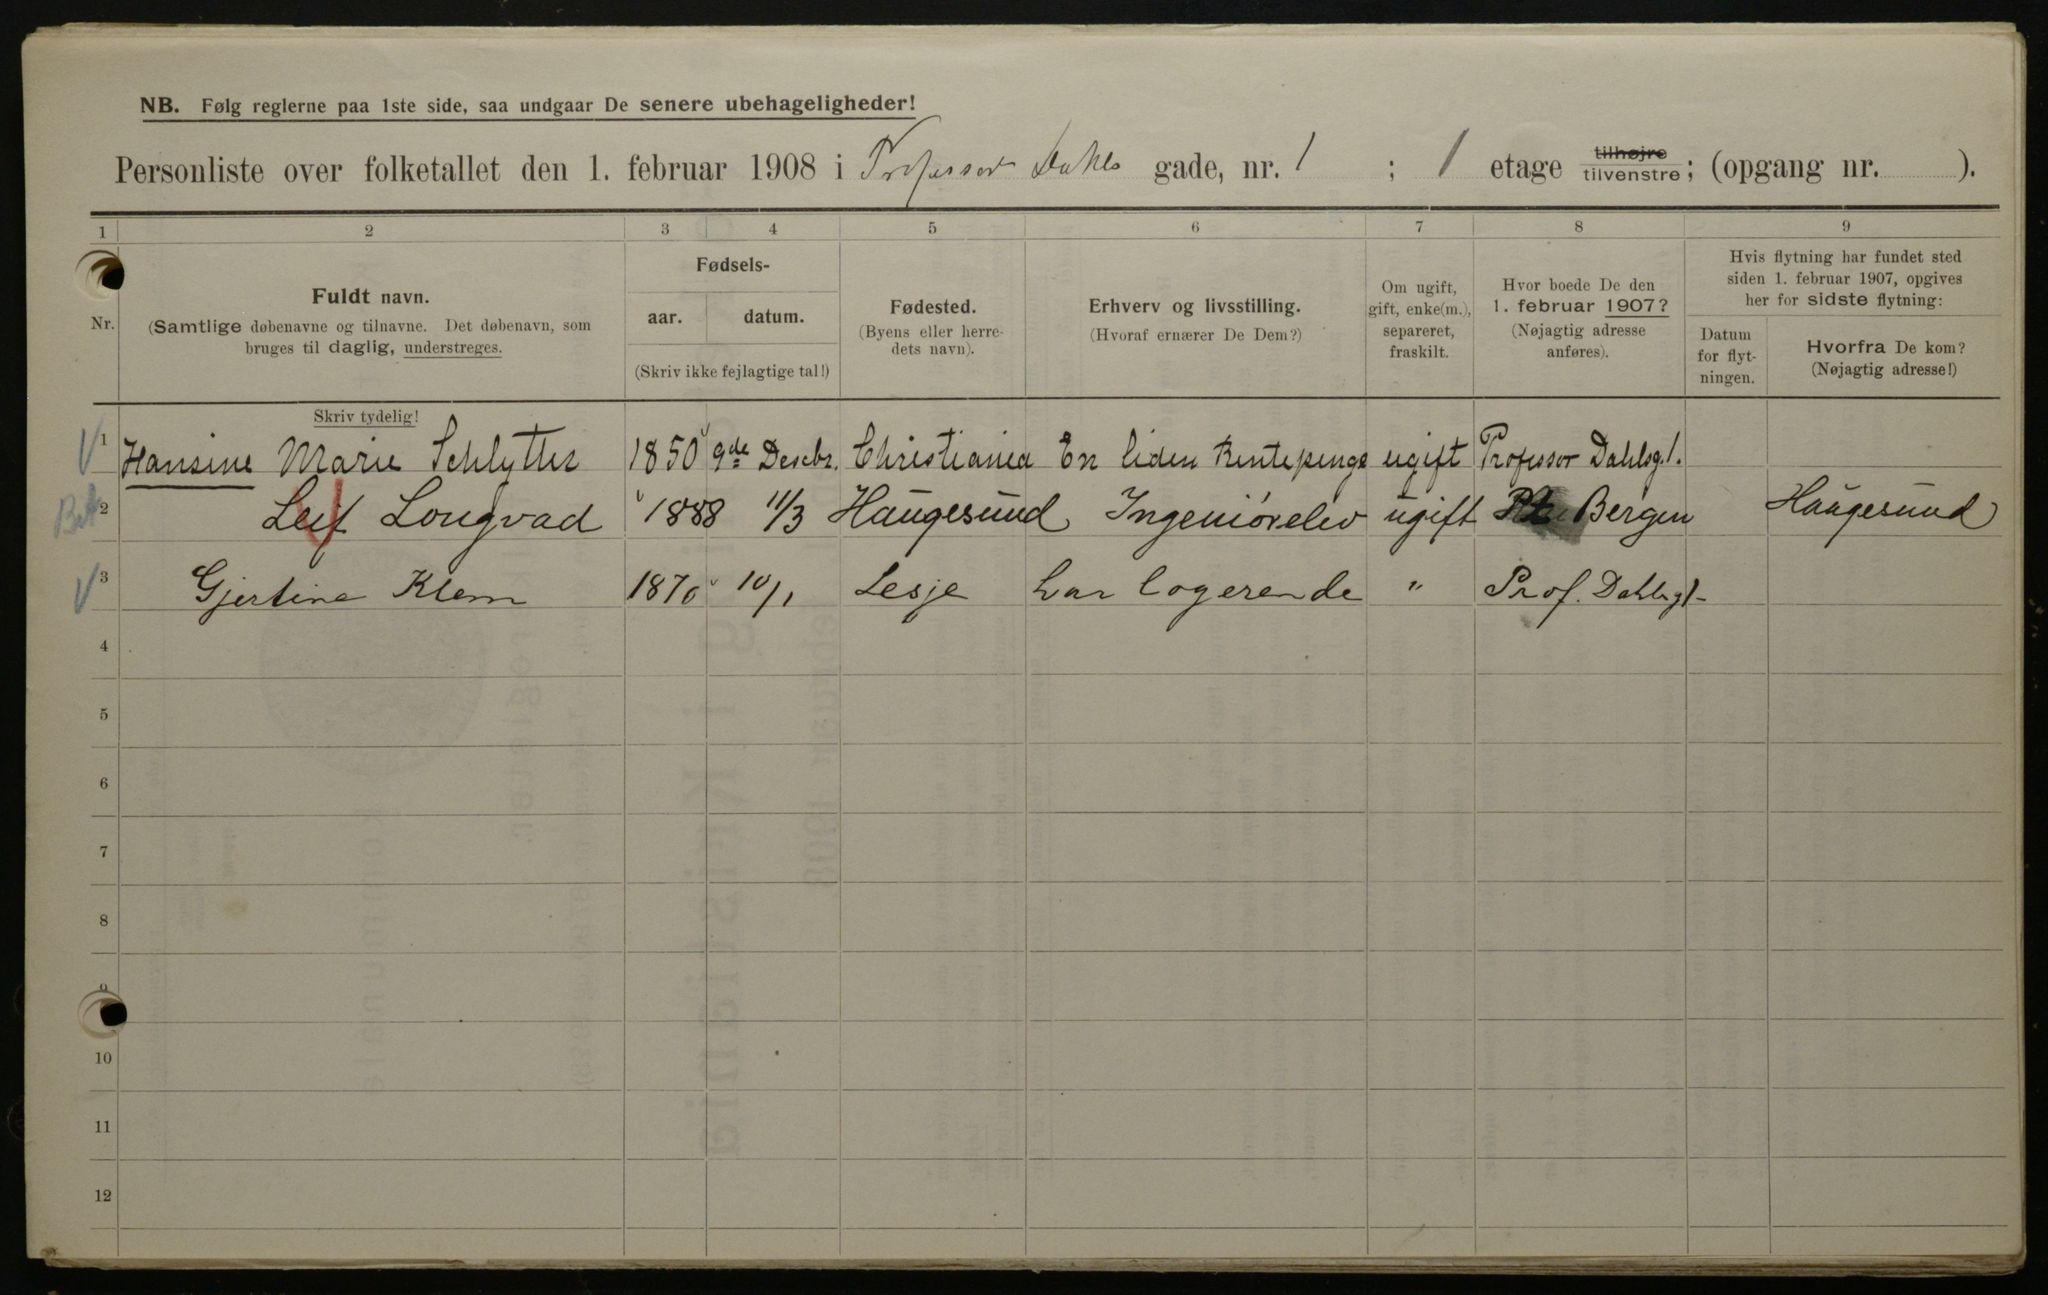 NB. Følg reglerne paa 1ste side, saa undgaar De senere ubehageligheder!
Personliste over folketallet den 1. februar 1908 i Professor Dahls gade, nr. 1 ; 1 etage tilhøjre tilvenstre; (opgang nr. ).
1 2 3 4 5 6 7 8 9
Nr.
Fuldt navn.
(Samtlige døbenavne og tilnavne. Det døbenavn, som
bruges til daglig, understreges.
Skriv tydelig!
Fødsels-
aar. datum.
(Skriv ikke fejlagtige tal!)
Fødested.
(Byens eller herre-
dets navn).
Erhverv og livsstilling.
(Hvoraf ernærer De Dem?)
Om ugift,
gift, enke(m.),
separeret,
fraskilt.
Hvor boede De den
1. februar 1907?
(Nøjagtig adresse
anføres).
Hvis flytning har fundet sted
siden 1. februar 1907, opgives
her for sidste flytning:
Datum
for flyt-
ningen.
Hvorfra De kom?
(Nøjagtig adresse!)
1 Hansine Marie Schlytter 1850 9de Desebr. Christiania En liden Rentepenge ugift Professor Dahlsg. 1.
2 Leif Longvad 1888 11/3 Haugesund Ingeniørelev ugift Bergen Haugesund
3 Gjertine Klem 1870 10/1 Lesje har logerende " Prof. Dahlsg 1
4
5
6
7
8
9
10
11
12